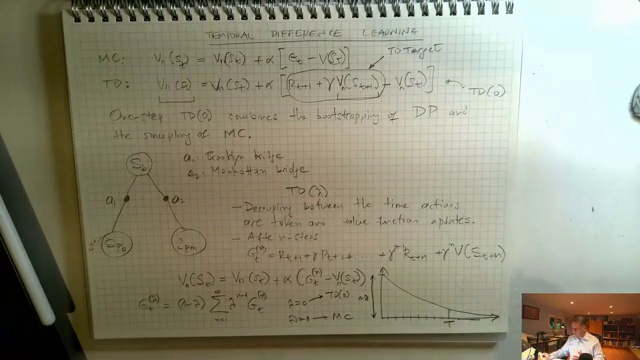 TEMPORAL DIFFERENCE LEARNING
MC: Vπ(St) = Vπ(St) + α [Gt - V(St)]
TD Target
TD: Vπ(St) = Vπ(St) + α [Rt+1 + γ Vπ(St+1) - Vπ(St)]
TD(0)
One-step TD(0) combines the bootstrapping of DP and
the sampling of MC.
S6
a1: Brooklyn bridge
a2: Manhattan bridge
a1
a2
TD(λ)
- Decoupling between the time actions
are taken and value function updates.
- After n-steps
+ γ^n V(St+n)
Vπ(St) = Vπ(St) + α (Gt^(n) - Vπ(St))
λ=0 → TD(0)
→ MC
T